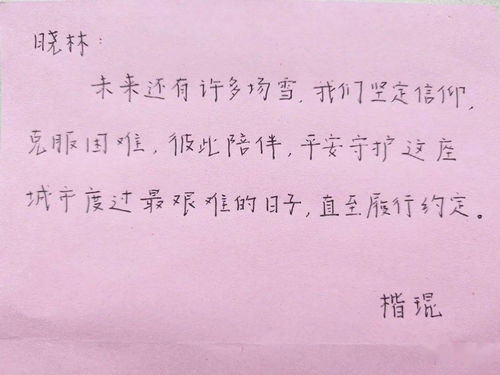 晓林：
未来还有许多场雪，我们坚定信仰，
克服困难，彼此陪伴，平安守护这座
城市度过最艰难的日子，直至履行约定。
楷琨